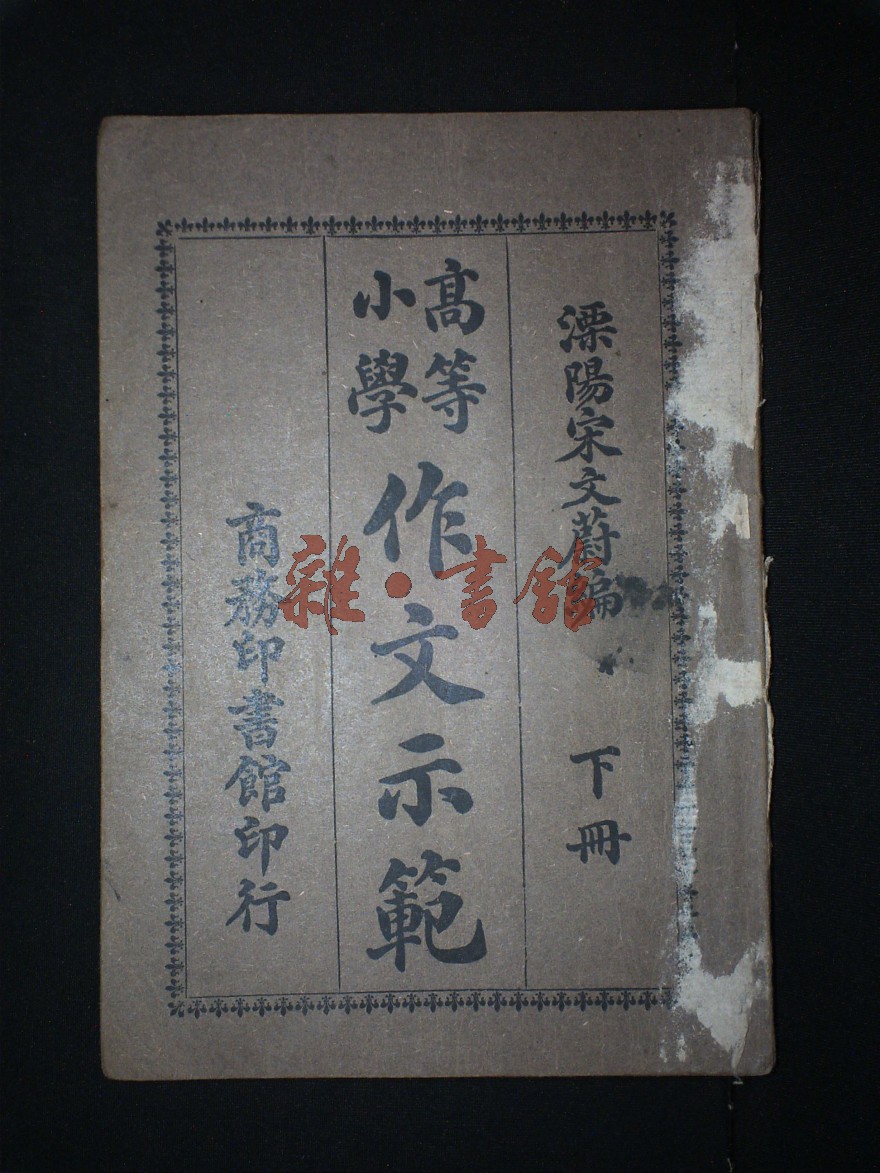 溧陽宋文蔚編 下冊
高等
小學
作文示範
商務印書館印行
雜·書館